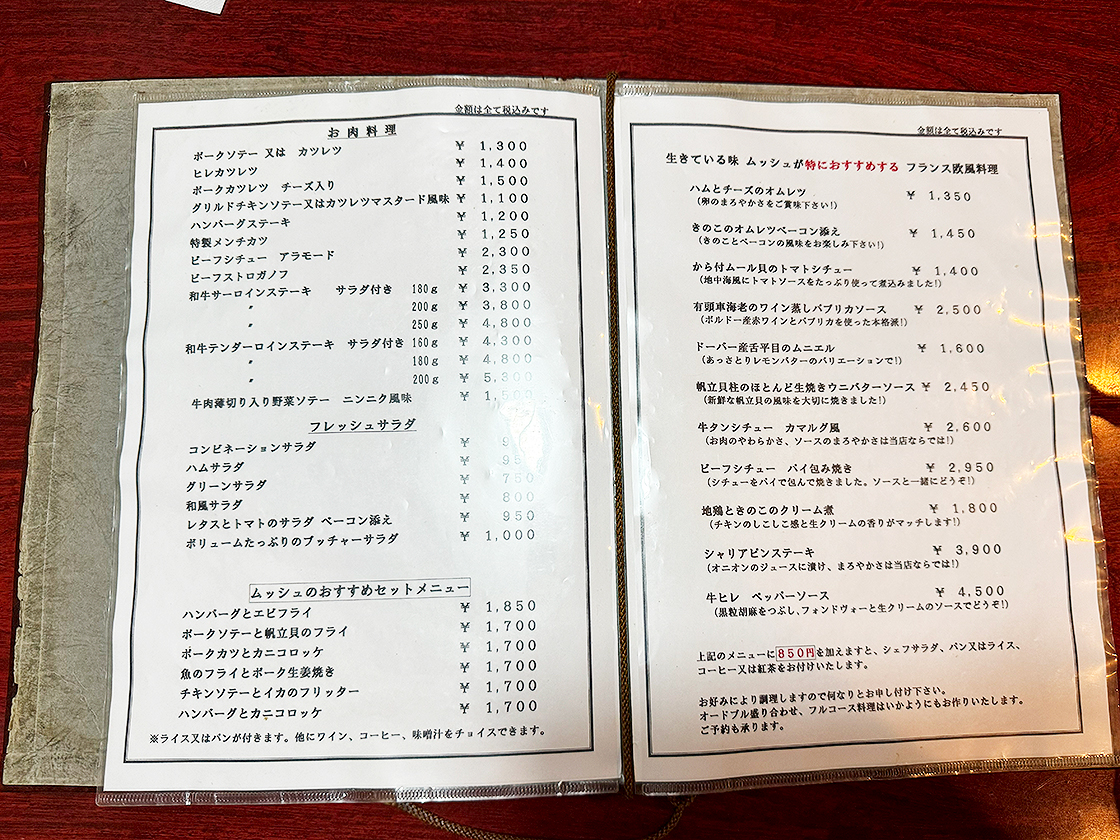 金額は全て税込みです
お肉料理
ポークソテー 又は カツレツ ¥ 1,300
ヒレカツレツ ¥ 1,400
ポークカツレツ チーズ入り ¥ 1,500
グリルドチキンソテー又はカツレツマスタード風味 ¥ 1,100
ハンバーグステーキ ¥ 1,200
特製メンチカツ ¥ 1,250
ビーフシチュー アラモード ¥ 2,300
ビーフストロガノフ ¥ 2,350
和牛サーロインステーキ サラダ付き 180g ¥ 3,300
〃 200g ¥ 3,800
〃 250g ¥ 4,800
和牛テンダーロインステーキ サラダ付き 160g ¥ 4,300
〃 180g ¥ 4,800
〃 200g ¥ 5,300
牛肉薄切り入り野菜ソテー ニンニク風味 ¥
フレッシュサラダ
コンビネーションサラダ ¥
ハムサラダ ¥
グリーンサラダ ¥ 750
和風サラダ ¥ 800
レタスとトマトのサラダ ベーコン添え ¥ 950
ボリュームたっぷりのブッチャーサラダ ¥ 1,000
ムッシュのおすすめセットメニュー
ハンバーグとエビフライ ¥ 1,850
ポークソテーと帆立貝のフライ ¥ 1,700
ポークカツとカニコロッケ ¥ 1,700
魚のフライとポーク生姜焼き ¥ 1,700
チキンソテーとイカのフリッター ¥ 1,700
ハンバーグとカニコロッケ ¥ 1,700
※ライス又はパンが付きます。他にワイン、コーヒー、味噌汁をチョイスできます。
金額は全て税込みです
生きている味 ムッシュが特におすすめする フランス欧風料理
ハムとチーズのオムレツ ¥ 1,350
(卵のまろやかさをご賞味下さい!)
きのこのオムレツベーコン添え ¥ 1,450
(きのことベーコンの風味をお楽しみ下さい!)
から付ムール貝のトマトシチュー ¥ 1,400
(地中海風にトマトソースをたっぷり使って煮込みました!)
有頭車海老のワイン蒸しパプリカソース ¥ 2,500
(ボルドー産赤ワインとパプリカを使った本格派!)
ドーバー産舌平目のムニエル ¥ 1,600
(あっさとりレモンバターのバリエーションで!)
帆立貝柱のほとんど生焼きウニバターソース ¥ 2,450
(新鮮な帆立貝の風味を大切に焼きました!)
牛タンシチュー カマルグ風 ¥ 2,600
(お肉のやわらかさ、ソースのまろやかさは当店ならでは!)
ビーフシチュー パイ包み焼き ¥ 2,950
(シチューをパイで包んで焼きました。ソースと一緒にどうぞ!)
地鶏ときのこのクリーム煮 ¥ 1,800
(チキンのしこしこ感と生クリームの香りがマッチします!)
シャリアピンステーキ ¥ 3,900
(オニオンのジュースに漬け、まろやかさは当店ならでは!)
牛ヒレ ペッパーソース ¥ 4,500
(黒粒胡麻をつぶし、フォンドヴォーと生クリームのソースでどうぞ!)
上記のメニューに850円を加えますと、シェフサラダ、パン又はライス、
コーヒー又は紅茶をお付けいたします。
お好みにより調理しますので何なりとお申し付け下さい。
オードブル盛り合わせ、フルコース料理はいかようにもお作りいたします。
ご予約も承ります。